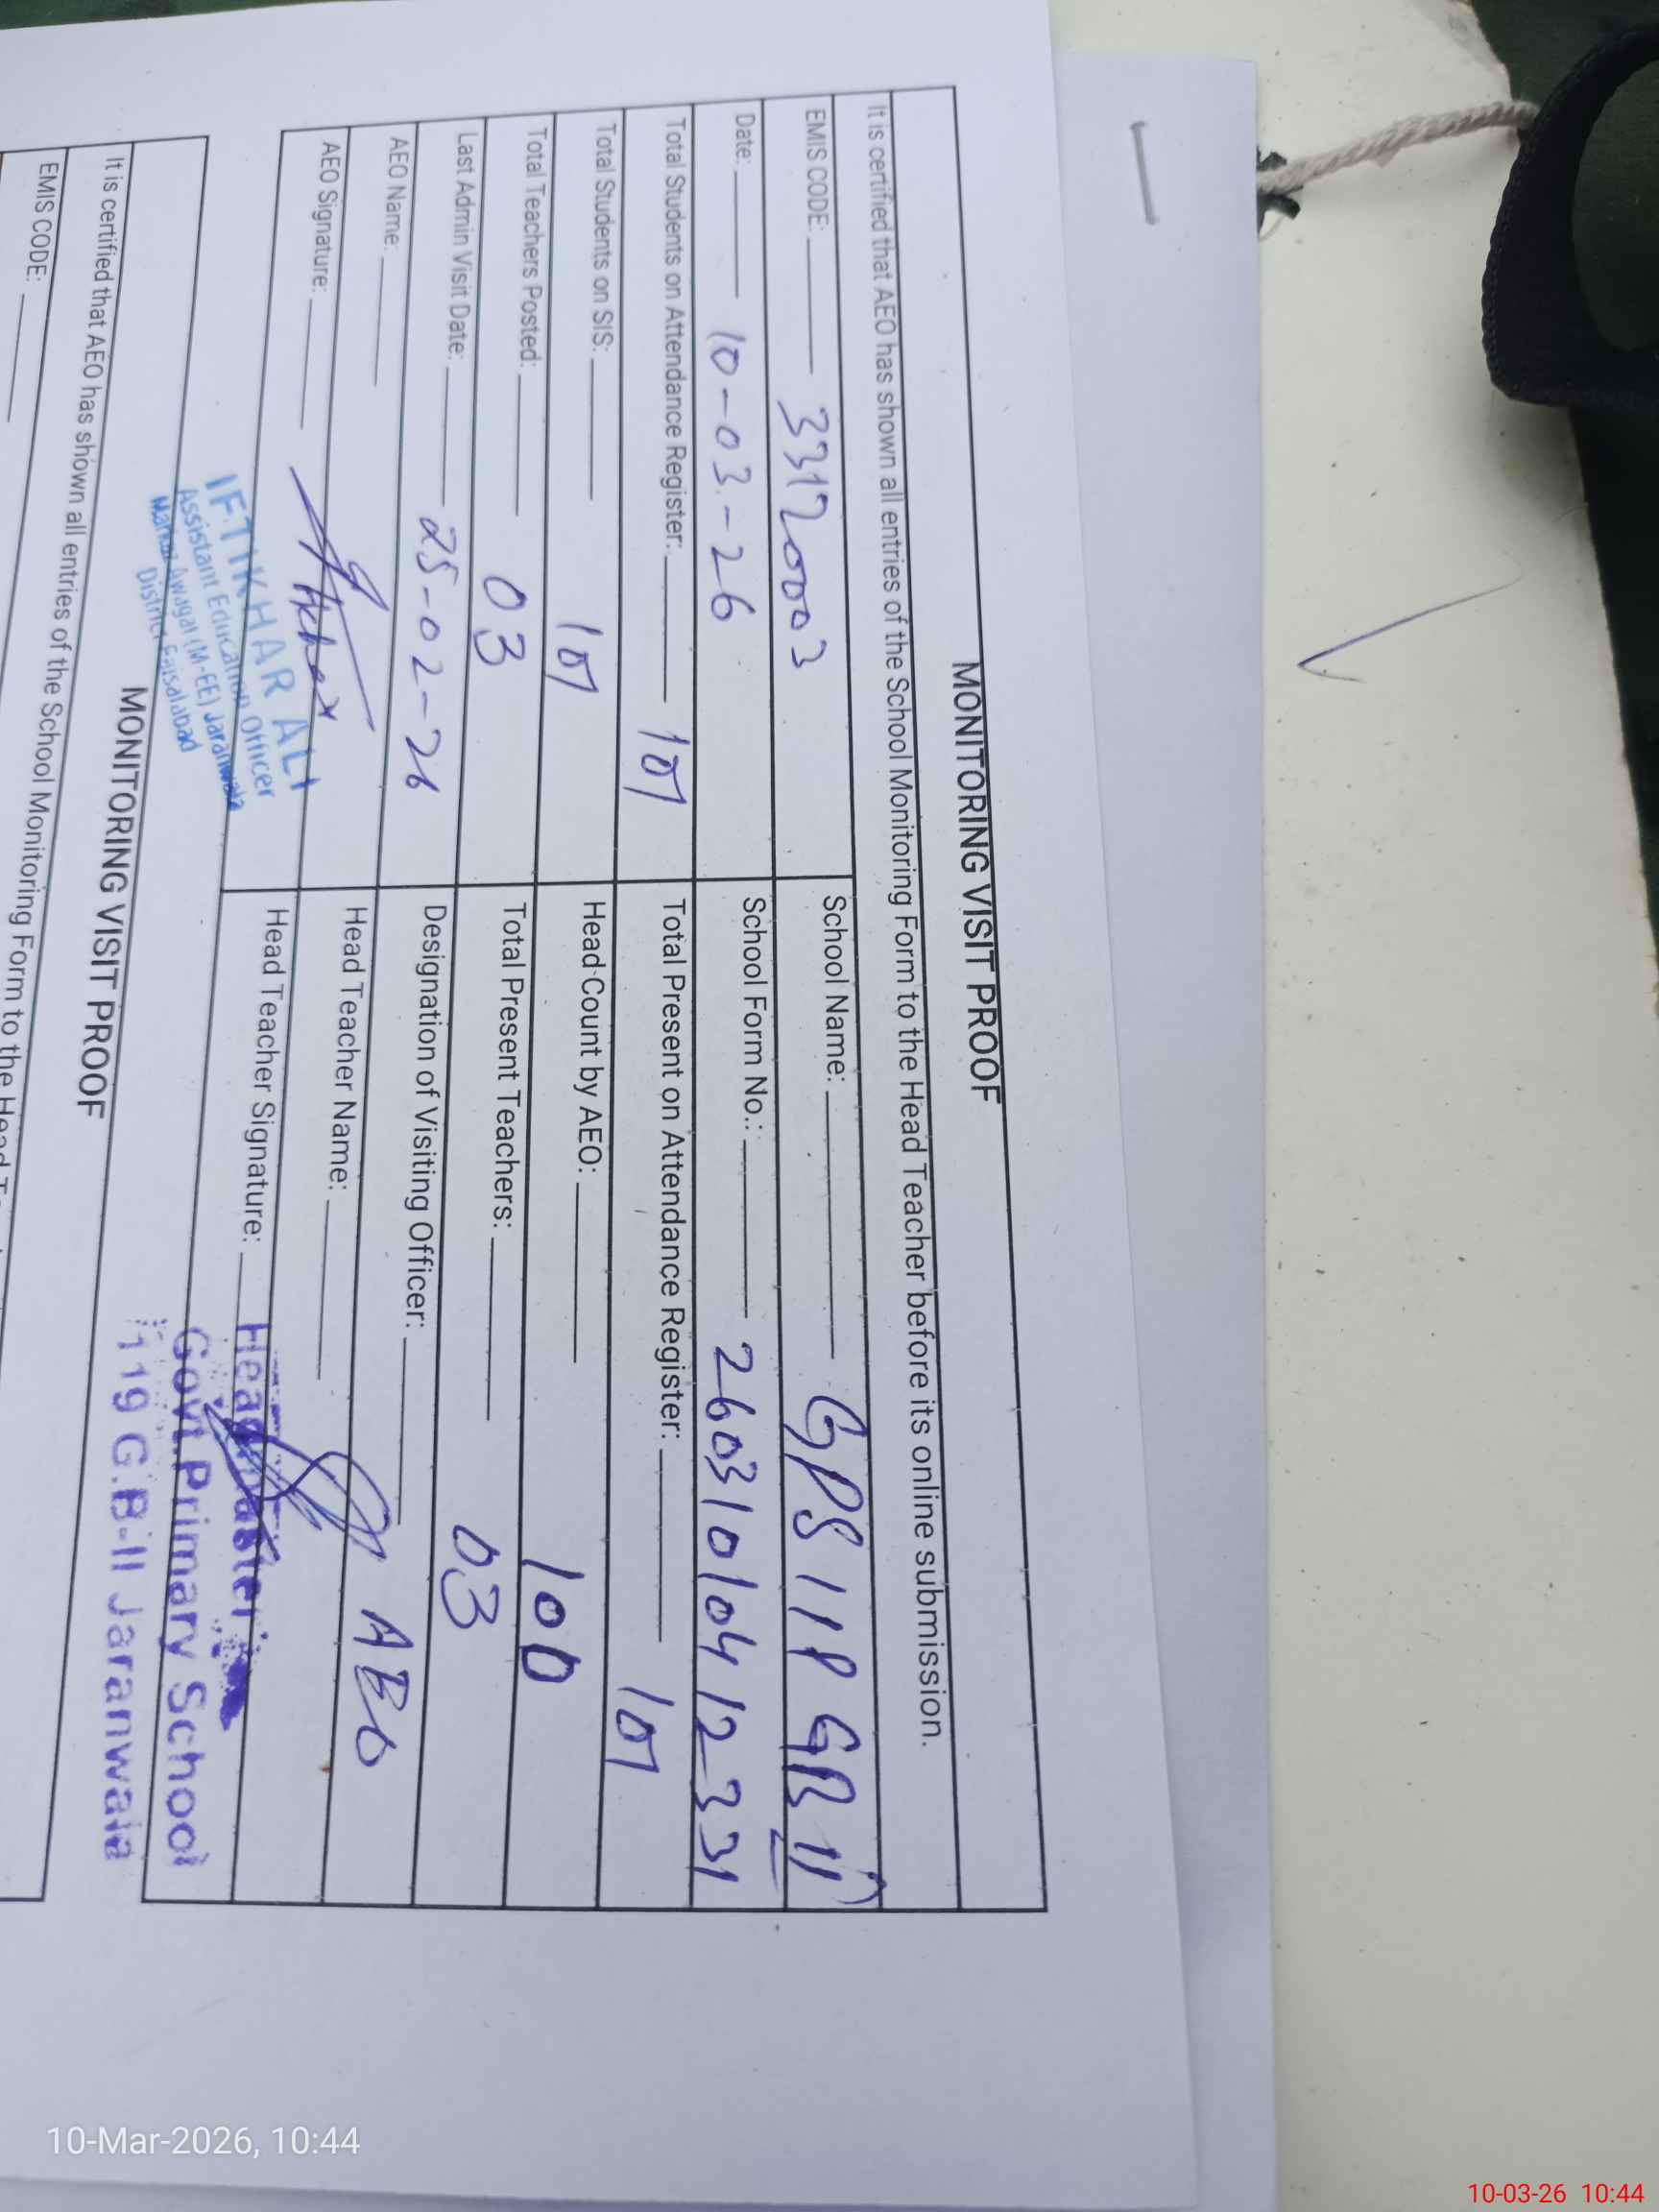 MONITORING VISIT PROOF
It is certified that AEO has shown all entries of the School Monitoring Form to the Head Teacher before its online submission.
EMIS CODE: 33120003 School Name: GPS 119 GB II
Date: 10-03-26 School Form No.: 26031010412331
Total Students on Attendance Register: 107 Total Present on Attendance Register: 107
Total Students on SIS: 107 Head Count by AEO: 100
Total Teachers Posted: 03 Total Present Teachers: 03
Last Admin Visit Date: 25-02-26 Designation of Visiting Officer: AEO
AEO Name: Head Teacher Name:
AEO Signature: Head Teacher Signature:
IFTIKHAR ALI
Assistant Education Officer
Markaz Awagat (M-EE) Jaranwala
District Faisalabad
Headmaster
Govt. Primary School
119 G.B-II Jaranwala
MONITORING VISIT PROOF
It is certified that AEO has shown all entries of the School Monitoring Form to the Head
EMIS CODE:
10-Mar-2026, 10:44
10-03-26 10:44